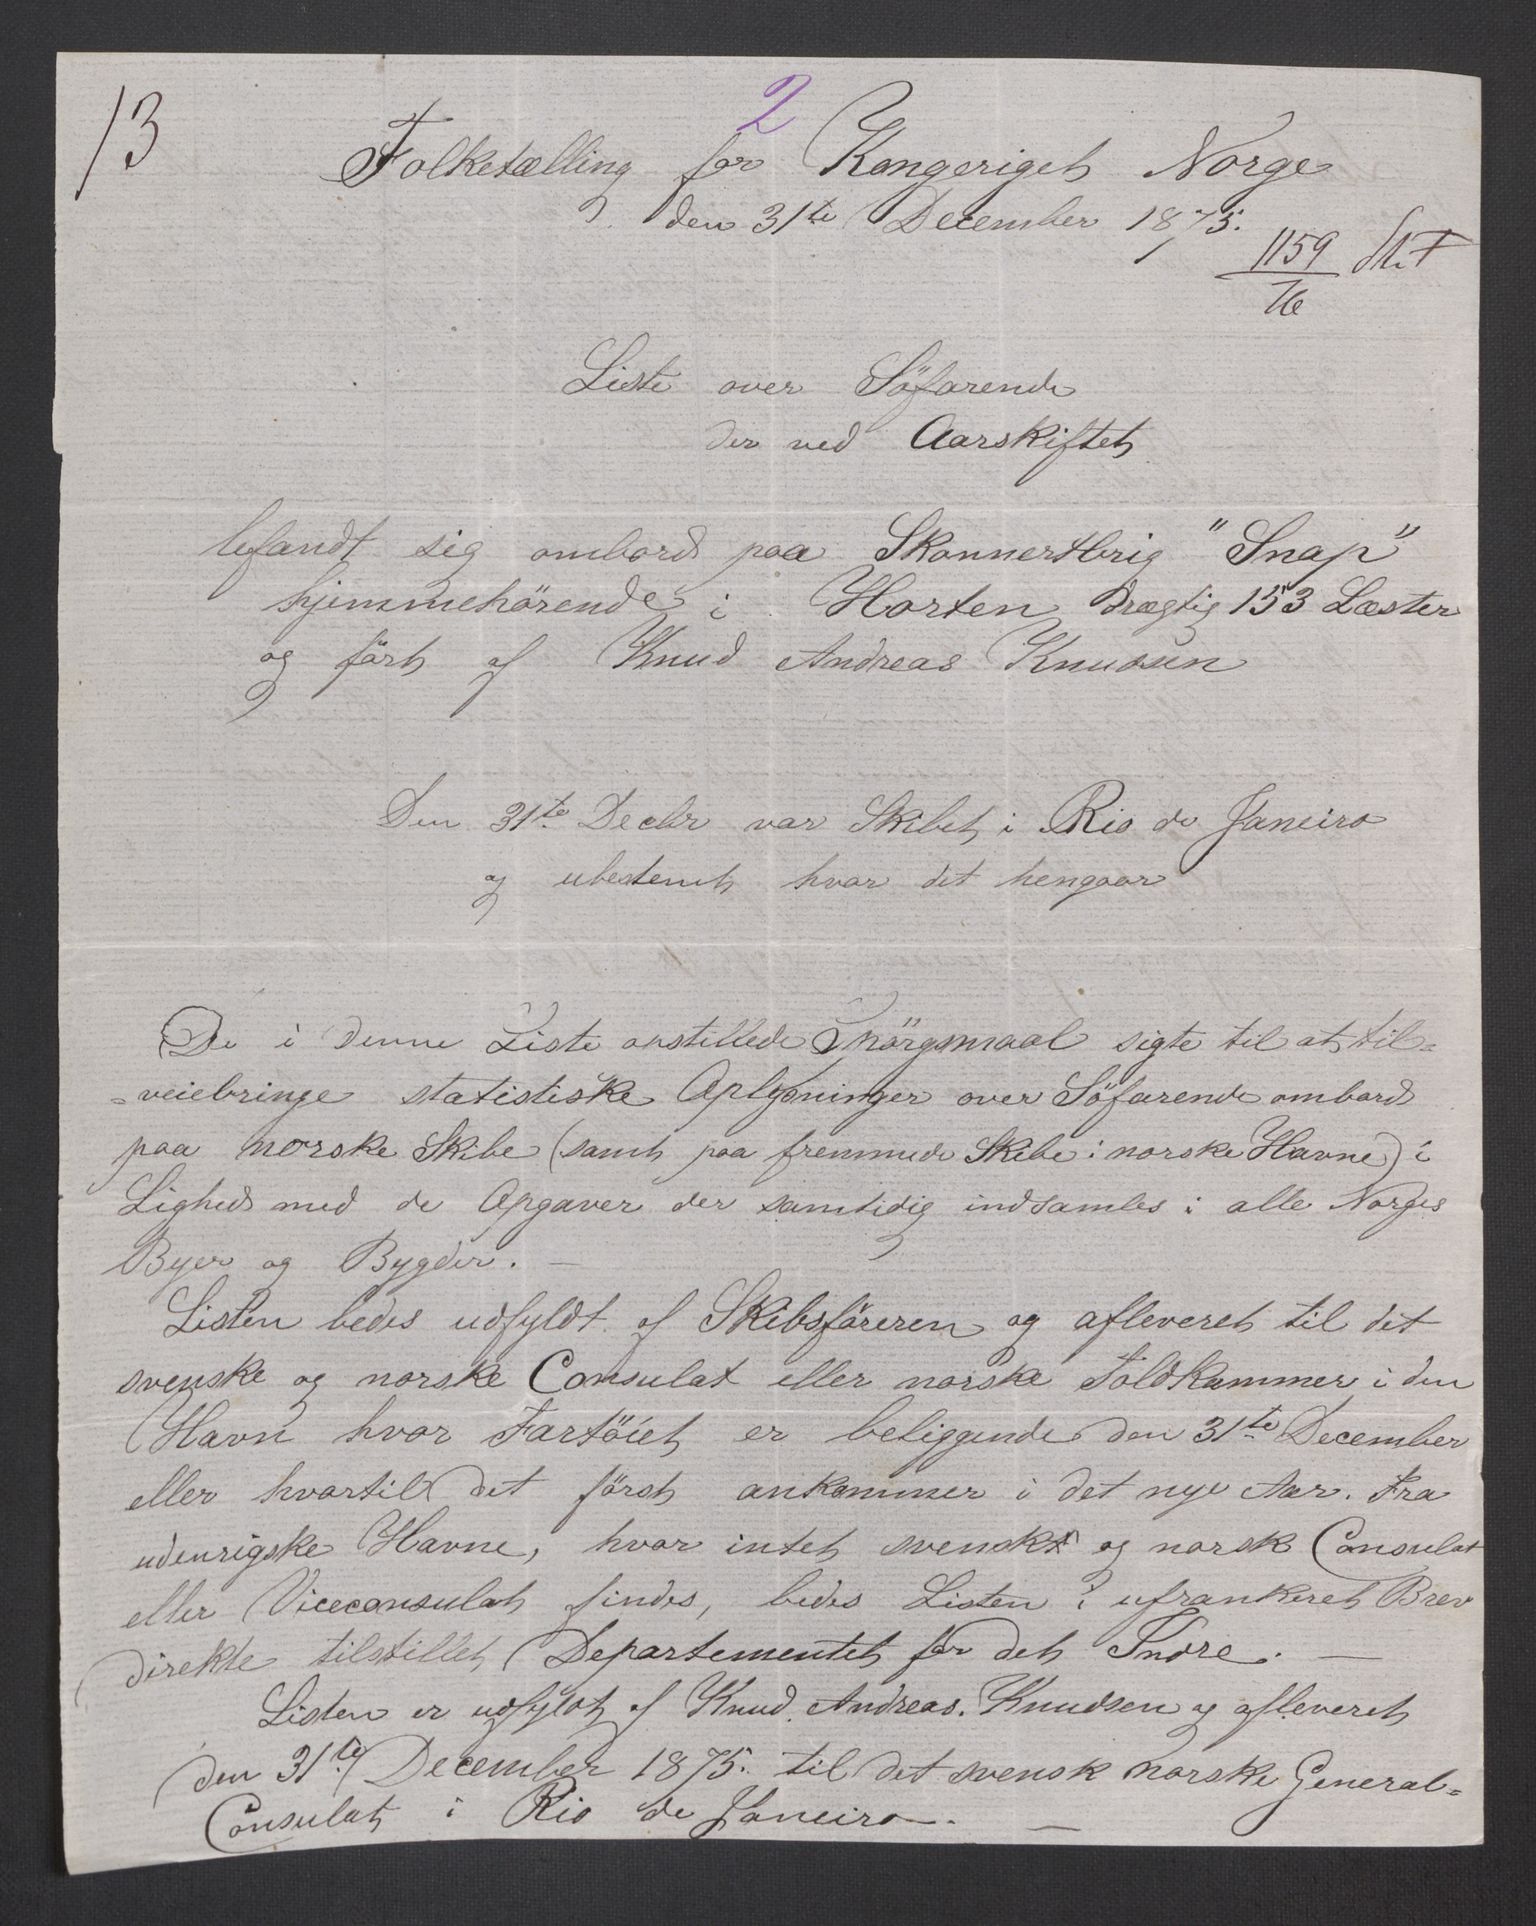 13
2
Folketælling for Kongeriget Norge
den 31te December 1875.
1159
76
Liste over Söfarende
der ved Aarskiftet
befandt sig ombord paa Skonnertbrig "Snap"
hjemmehörende i Horten drægtig 153 Læster
og fört af Knud Andreas Knudsen
Den 31te Decbr var Skibet i Rio de Janeiro
og ubestemt hvor det hengaar
De i denne Liste anstillede Spörgsmaal sigte til at til=
=veiebringe statistiske Oplysninger over Söfarende ombord
paa norske Skibe (samt paa fremmede Skibe i norske Havne) i
Lighed med de Opgaver der samtidig indsamles i alle Norges
Byer og Bygder. —
Listen bedes udfyldt af Skibsföreren og afleveret til det
svenske og norske Consulat eller norske Toldkammer i den
Havn hvor Fartöiet er beliggende den 31te December
eller hvortil det först ankommer i det nye Aar. Fra
udenrigske Havne, hvor intet svenskt og norsk Consulat
eller Viceconsulat findes, bedes Listen i ufrankeret Brev
direkte tilstillet Departementet for det Indre. —
Listen er udfyldt af Knud Andreas Knudsen og afleveret
den 31te December 1875. til det svensk norske General=
Consulat i Rio de Janeiro. —